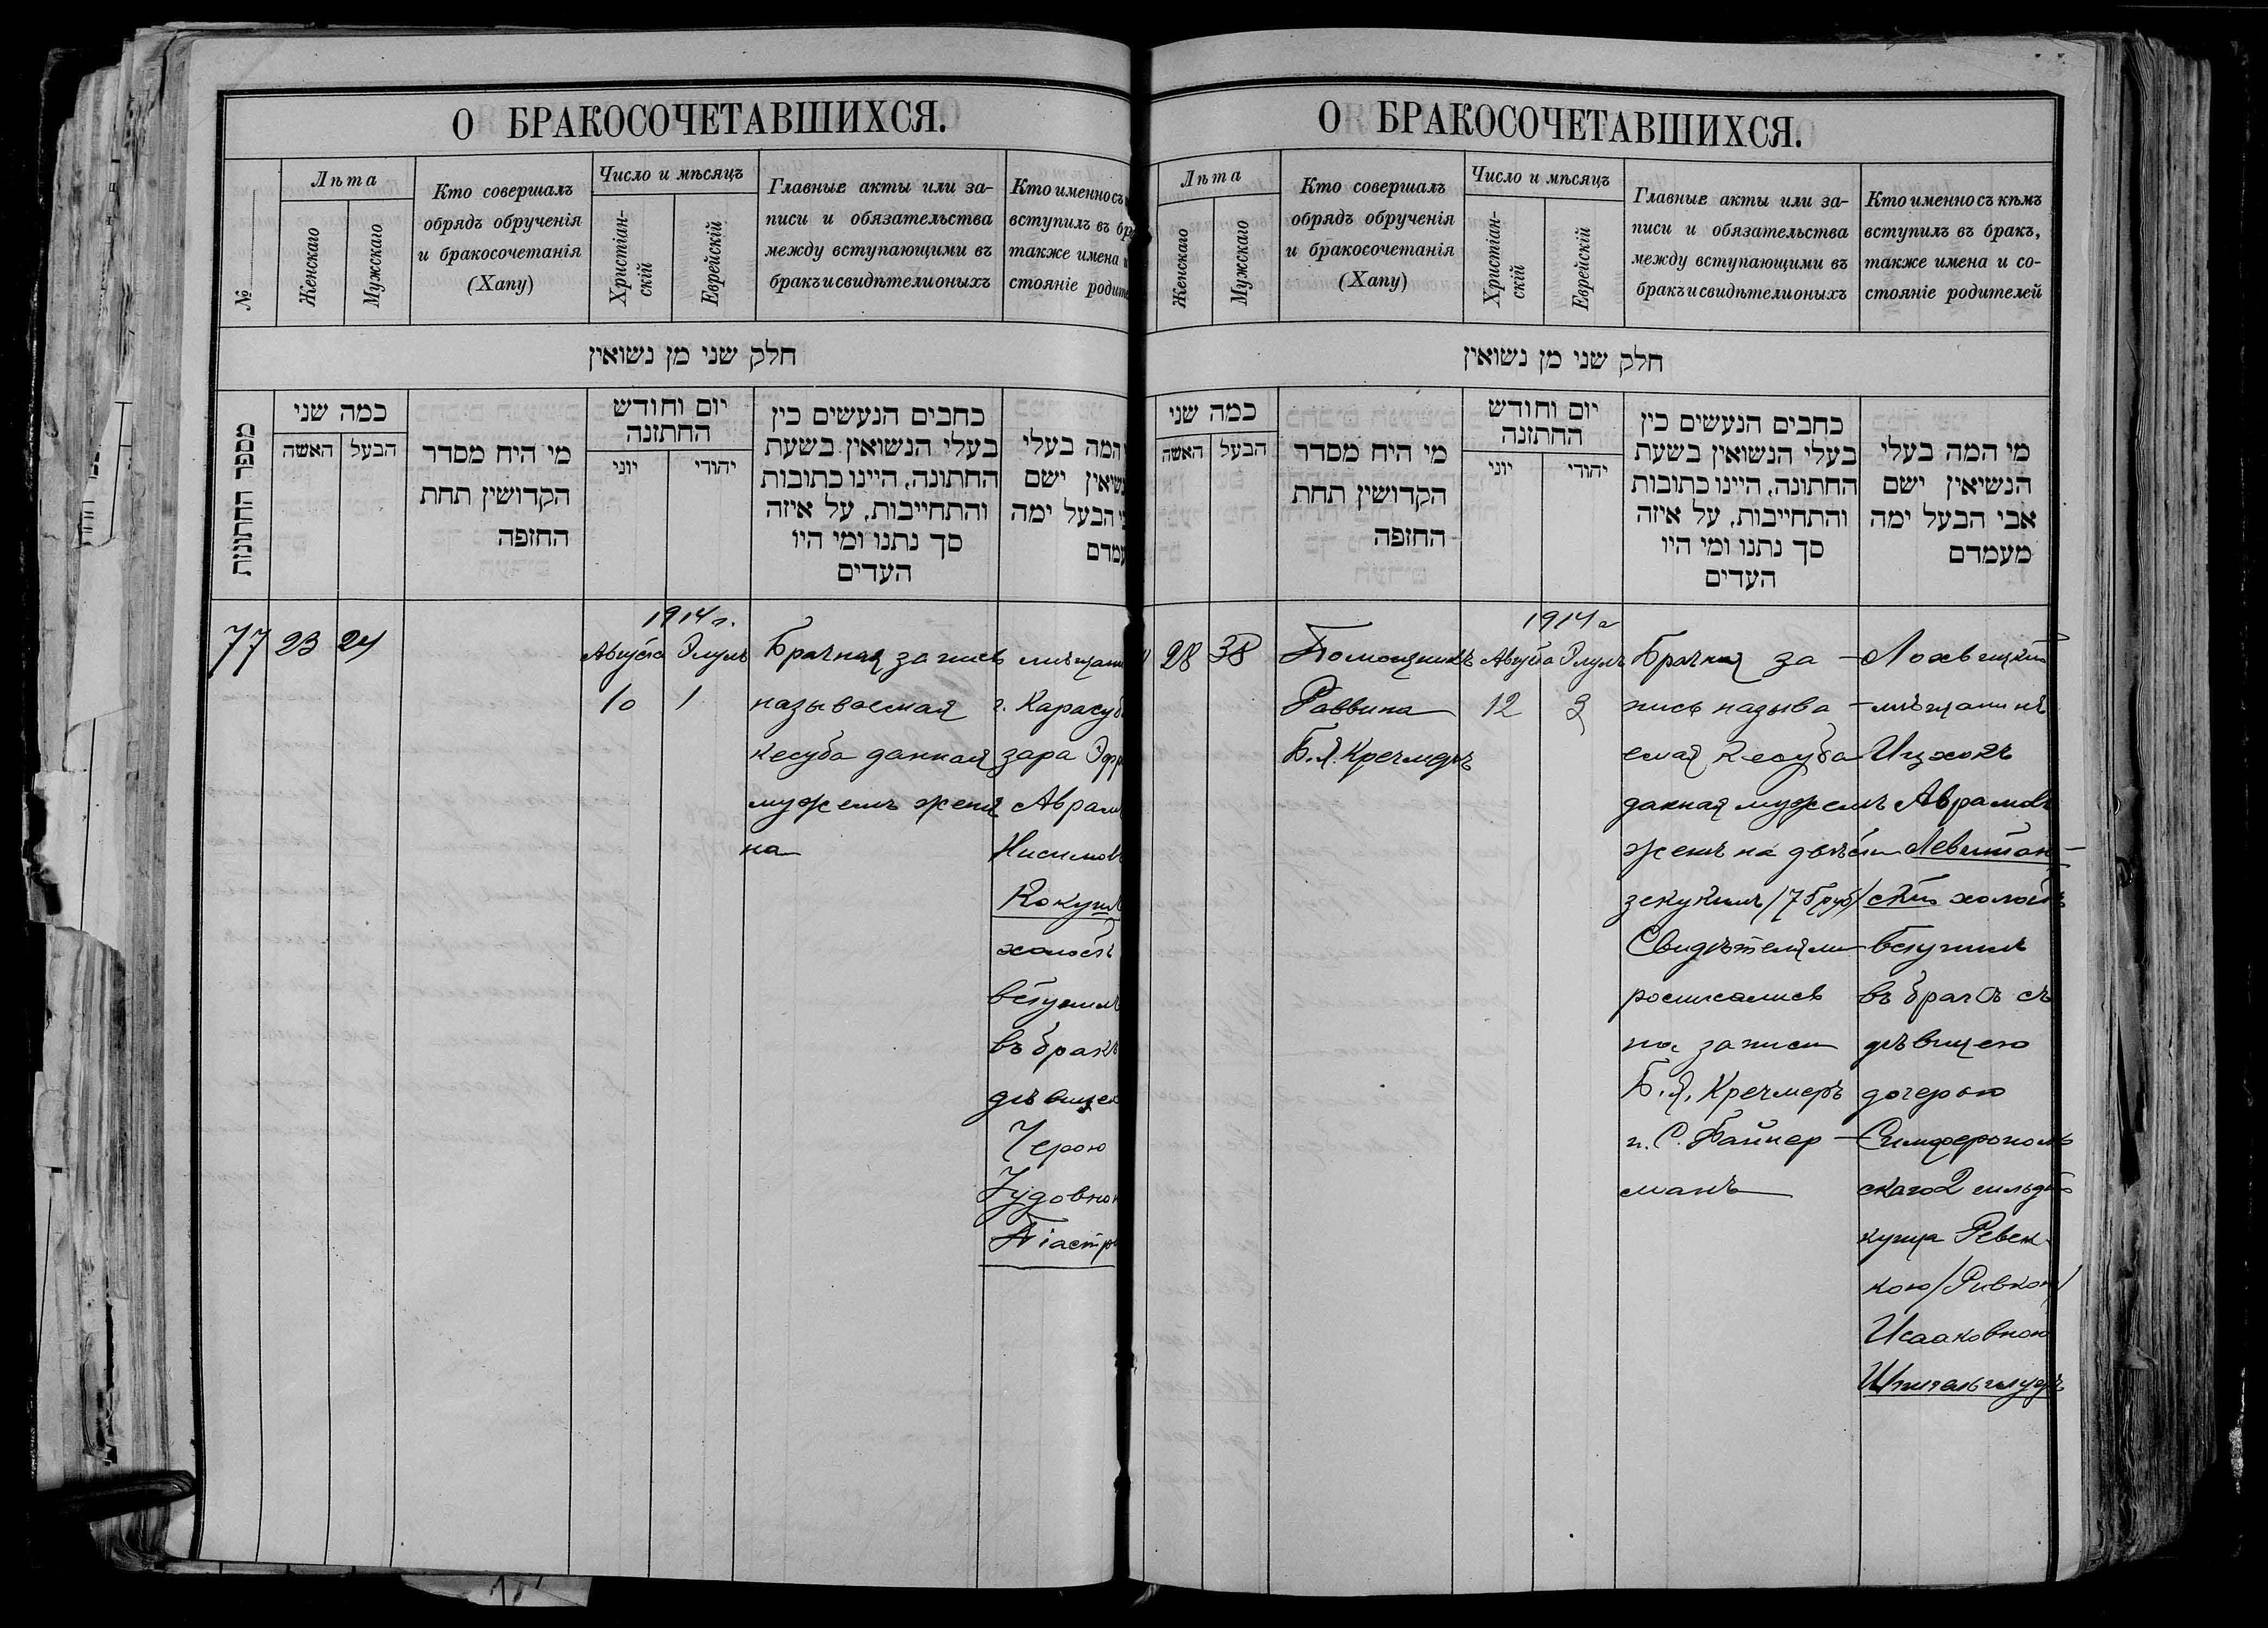 О БРАКОСОЧЕТАВШИХСЯ.
№
Лѣта
Женскаго
Мужскаго
Кто совершалъ
обрядъ обрученія
и бракосочетанія
(Хапу)
Число и мѣсяцъ
Христіан-
скій
Еврейскій
Главные акты или за-
писи и обязательства
между вступающими въ
бракъ и свидѣтели оныхъ
Кто именно съ
вступилъ въ
также имена
стояніе
חלק שני מן נשואין
מספר החתונות
כמה שני
האשה
הבעל
מי היח מסדר
הקדושין תחת
החזפה
יום וחודש
החתזנה
יוני
יהודי
כחבים הנעשים כין
בעלי הנשואין בשעת
החתונה, היינו כתובות
והתחייבות, על איזה
סך נתנו ומי היו
העדים
המה בעלי
ישם
הבעל ימה
77
23
24
1914 г.
Августа Элулъ
10 1
Брачная запись
называемая
кесуба данная
мужемъ женѣ
на
г.
зара
холостъ
вступилъ
въ бракъ
О БРАКОСОЧЕТАВШИХСЯ.
Лѣта
Женскаго
Мужскаго
Кто совершалъ
обрядъ обрученія
и бракосочетанія
(Хапу)
Число и мѣсяцъ
Христіан-
скій
Еврейскій
Главные акты или за-
писи и обязательства
между вступающими въ
бракъ и свидѣтели оныхъ
Кто именно съ кѣмъ
вступилъ въ бракъ,
также имена и со-
стояніе родителей
חלק שני מן נשואין
כמה שני
האשה
הבעל
מי היח מסדר
הקדושין תחת
החזפה
יום וחודש
החתזנה
יוני
יהודי
כחבים הנעשים כין
בעלי הנשואין בשעת
החתונה, היינו כתובות
והתחייבות, על איזה
סך נתנו ומי היו
העדים
מי המה בעלי
הנשיאין ישם
אבי הבעל ימה
מעמדם
28
38
Помощникъ
Раввина
Б. Я. Кречмеръ
1914 г
Августа Элулъ
12 3
Брачная за-
пись называ-
емая кесуба
данная мужемъ
женѣ на двѣсти
зекукимъ /75 руб/
Свидѣтелями
росписались
на записи
Б. Я. Кречмеръ
и С. Файнер-
манъ
Лохвицкій
мѣщанинъ
Ицхокъ
Аврамовъ
Левитан-
скій холостъ
вступилъ
въ бракъ съ
дѣвицею
дочерью
Симферополь
скаго 2 гильдіи
купца Ревек-
кою /Ривкою/
Исааковною
Шпигельглузъ